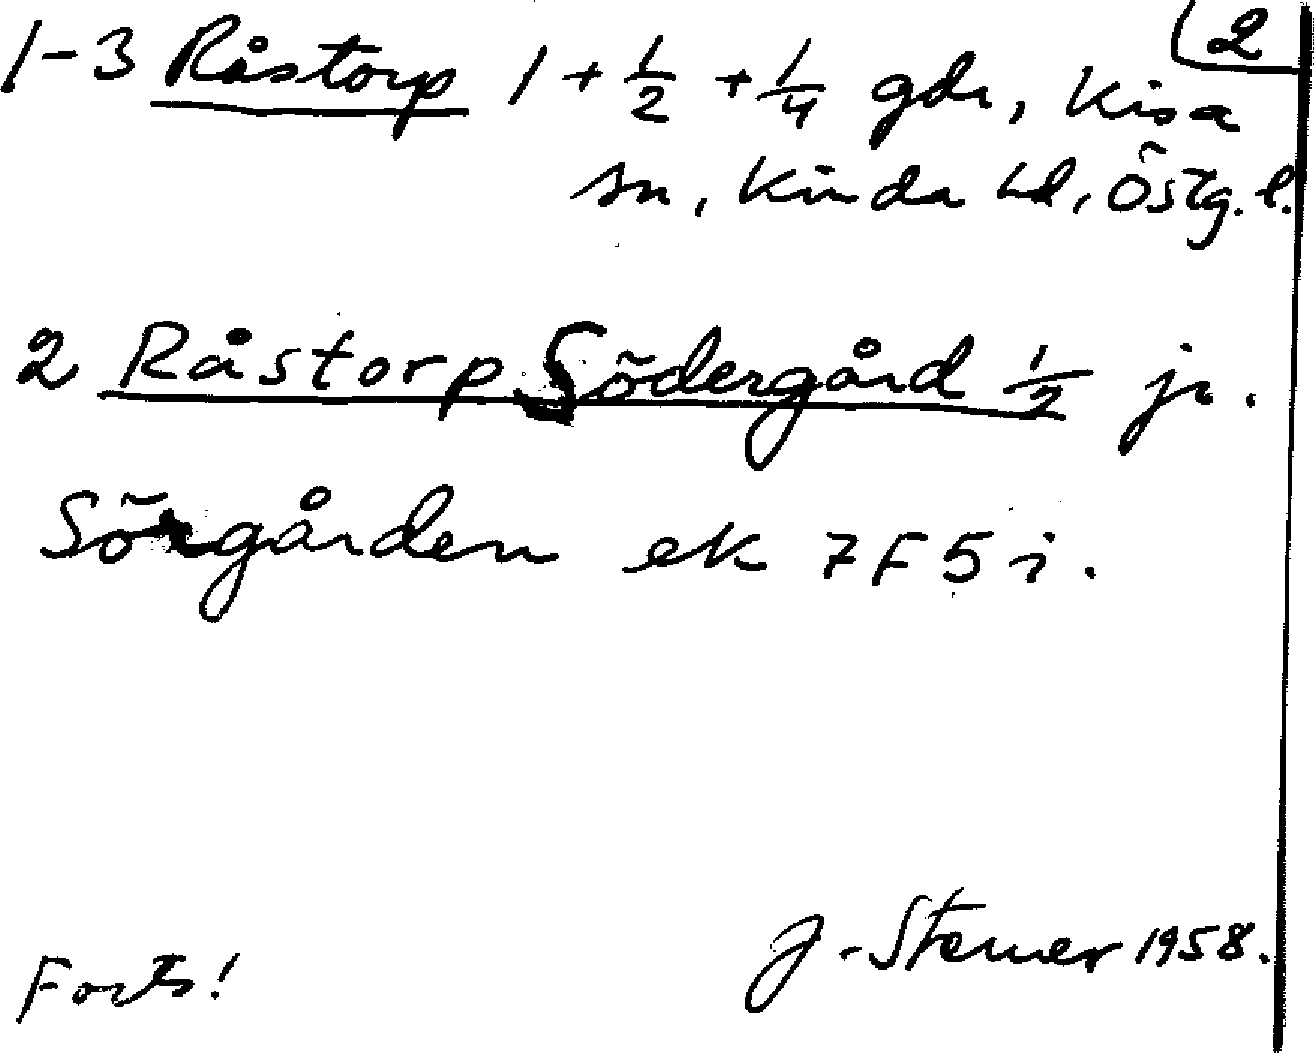 2
1-3 Råstorp 1 + 1/2 + 1/4 gdr, Kisa
sn, Kinda hd, Östg. l.
2 Råstorp Södergård 1/2 jr.
Sörgården ek 7F5i.
J. Sterner 1958.
Forts!